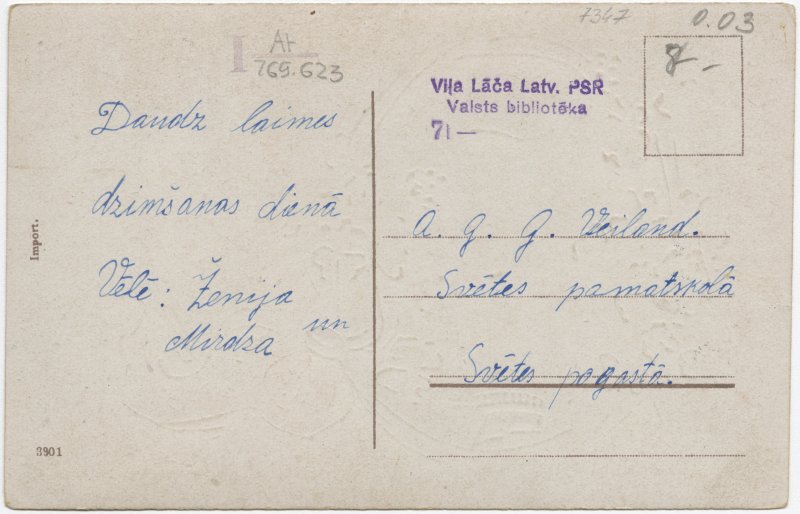 7347
0.03
I At
769.623
8 -
Viļa Lāča Latv. PSR
Valsts bibliotēka
71—
Daudz laimes
dzimšanas dienā
Vēlē: Ženija
un
Mirdza
A. g. G. Veiland.
Svētes pamatskolā
Svētes pagastā.
Import.
3901